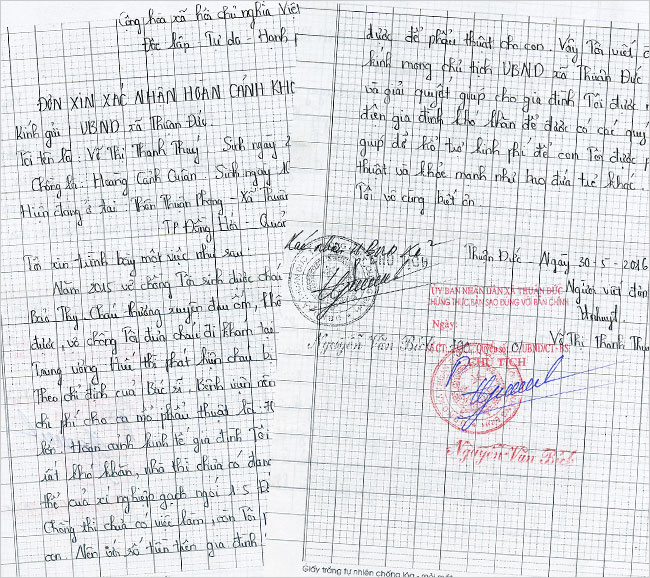 Cộng hòa xã hội chủ nghĩa Việt
Độc lập - Tự do - Hạnh
ĐƠN XIN XÁC NHẬN HOÀN CẢNH KHÓ
Kính gửi UBND xã Thuận Đức.
Tôi tên là: Võ Thị Thanh Thuỷ Sinh ngày 2
Chồng là: Hoàng Cảnh Quân. Sinh ngày
Hiện đang ở tại: Thôn Thuận Phong - Xã Thuận
TP Đồng Hới - Quản
Tôi xin trình bày một việc như sau:
Năm 2015 vợ chồng Tôi sinh được cháu
Bảo Thy. Cháu thường xuyên đau ốm, khó
được, vợ chồng Tôi đưa cháu đi khám tại
Trung ương Huế thì phát hiện cháu bị
Theo chỉ định của Bác sĩ Bệnh viện nên
chi phí cho ca mổ phẩu thuật là:
lớn. Hoàn cảnh kinh tế gia đình Tôi
rất khó khăn, nhà thì chưa có đang
thể của xí nghiệp gạch ngói 1-5
Chồng thì chưa có việc làm, còn Tôi
con. Nên với số tiền trên gia đình
được để phẩu thuật cho con. Vậy Tôi viết
kính mong chủ tịch UBND xã Thuận Đức
và giải quyết giúp cho gia đình Tôi được
diện gia đình khó khăn để được có các quý
giúp để hổ trợ kinh phí để con Tôi được
thuật và khỏe mạnh như bao đứa trẻ khác.
Tôi vô cùng biết ơn.
Xác nhận UBND xã
PHÓ CHỦ TỊCH
Nguyễn Văn Bích
Thuận Đức - Ngày 30-5-2016
Người viết đơn
Võ Thị Thanh Thuỷ
ỦY BAN NHÂN DÂN XÃ THUẬN ĐỨC
CHỨNG THỰC BẢN SAO ĐÚNG VỚI BẢN CHÍNH
Ngày:
Quyển số 01/UBND/CT-BS
P.CHỦ TỊCH
Nguyễn Văn Bích
Giấy trắng tự nhiên chống lóa - mỏi mắt